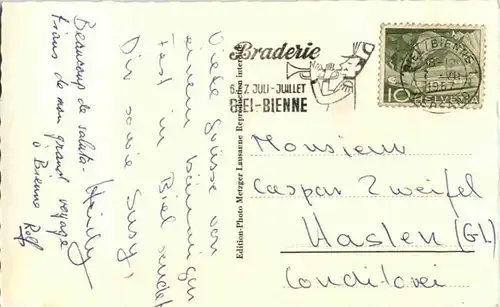 Viele Grüsse von
einem bäumigen
Fest in Biel sendet
Dir sowie Susy,
Heidly
Beaucoup de saluta-
tions de mon grand voyage
à Bienne Rolf
Edition-Photo Metzger Lausanne Reproduction interdite
Braderie
6.+7. JULI-JUILLET
BIEL-BIENNE
BIEL/BIENNE
VII
1957
10 HELVETIA
Monsieur
Caspar Zweifel
Haslen (GL)
Conditorei